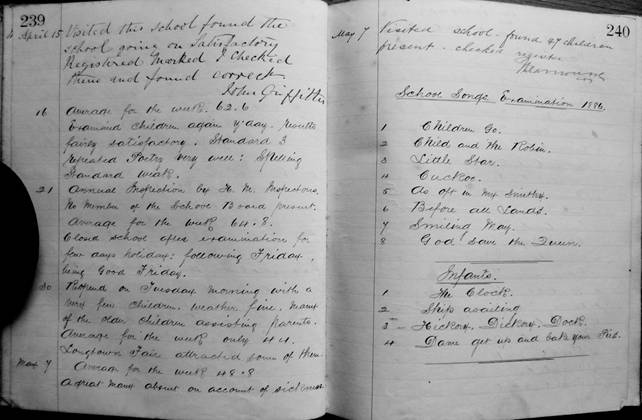 239
April 15 Visited this school found the
school going on Satisfactory
Registered Marked I Checked
them and found correct
John Griffiths
16 Average for the week 62.6
Examined children again y'day. results
fairly satisfactory. Standard 3
repeated Poetry very well: Spelling
Standard weak.
21 Annual Inspection by H. M. Inspectors.
No Member of the School Board present.
Average for the week 64.8.
Closed school after examination for
few days holiday: following Friday,
being Good Friday.
30 Reopened on Tuesday morning with a
very few children. weather fine. many
of the older children assisting parents.
Average for the week only 44.
Longtown Fair attracted some of them.
May 7 Average for the week 48.8
A great many absent on account of sickness
240
May 7 Visited school. found 47 children
present. checked register
School Songs Examination 1886.
1 Children Go.
2 Child and the Robin.
3 Little Star.
4 Cuckoo.
5 As oft in my Smithy.
6 Before all Lands.
7 Smiling May.
8 God save the Queen.
Infants.
1 The Clock.
2 Ship asailing
3 Hickory, Dickory, Dock.
4 Dame get up and bake your Pies.